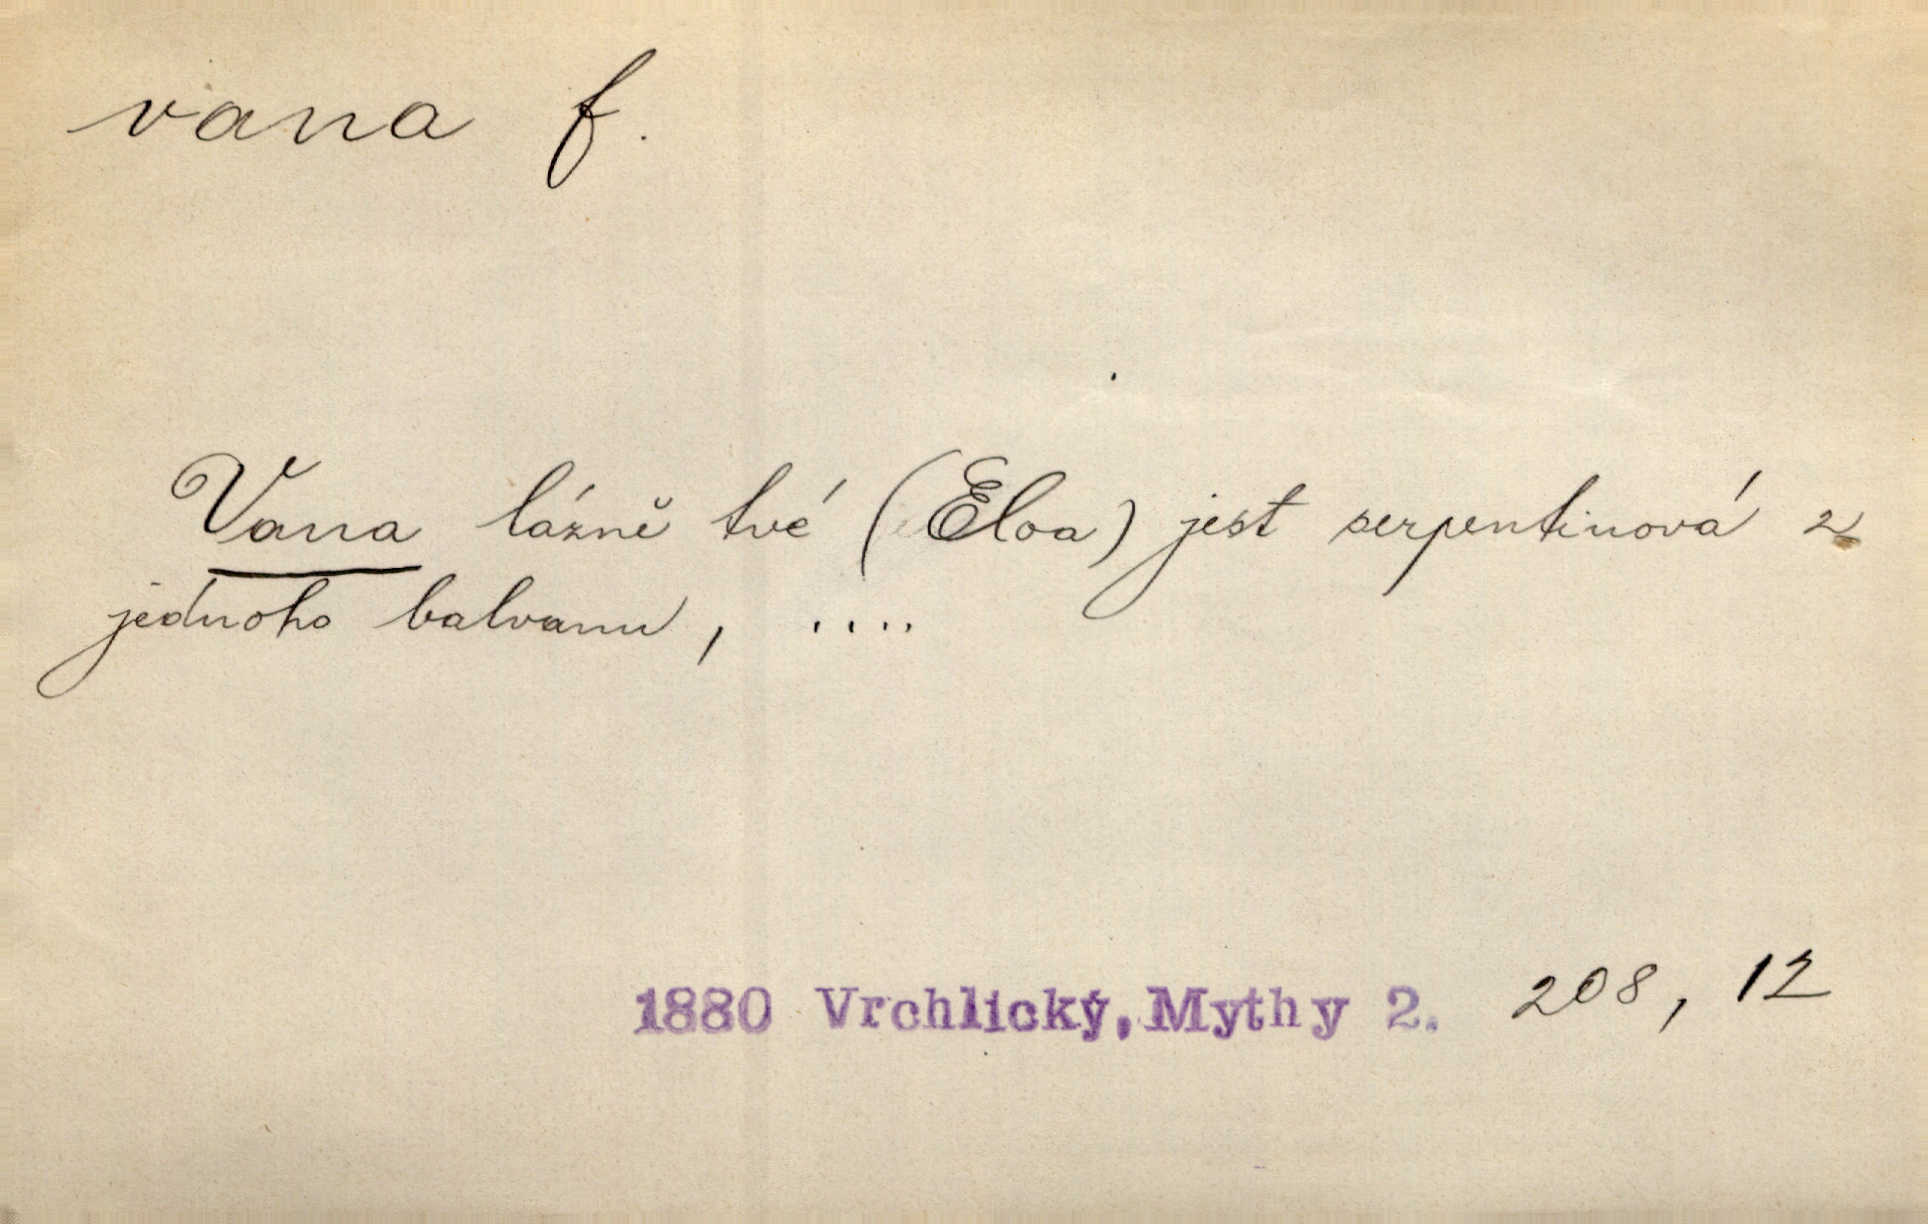 vana f.
Vana lázně tvé (Eloa) jest serpentinová z
jednoho balvanu, ....
1880 Vrchlický, Mythy 2. 208, 12